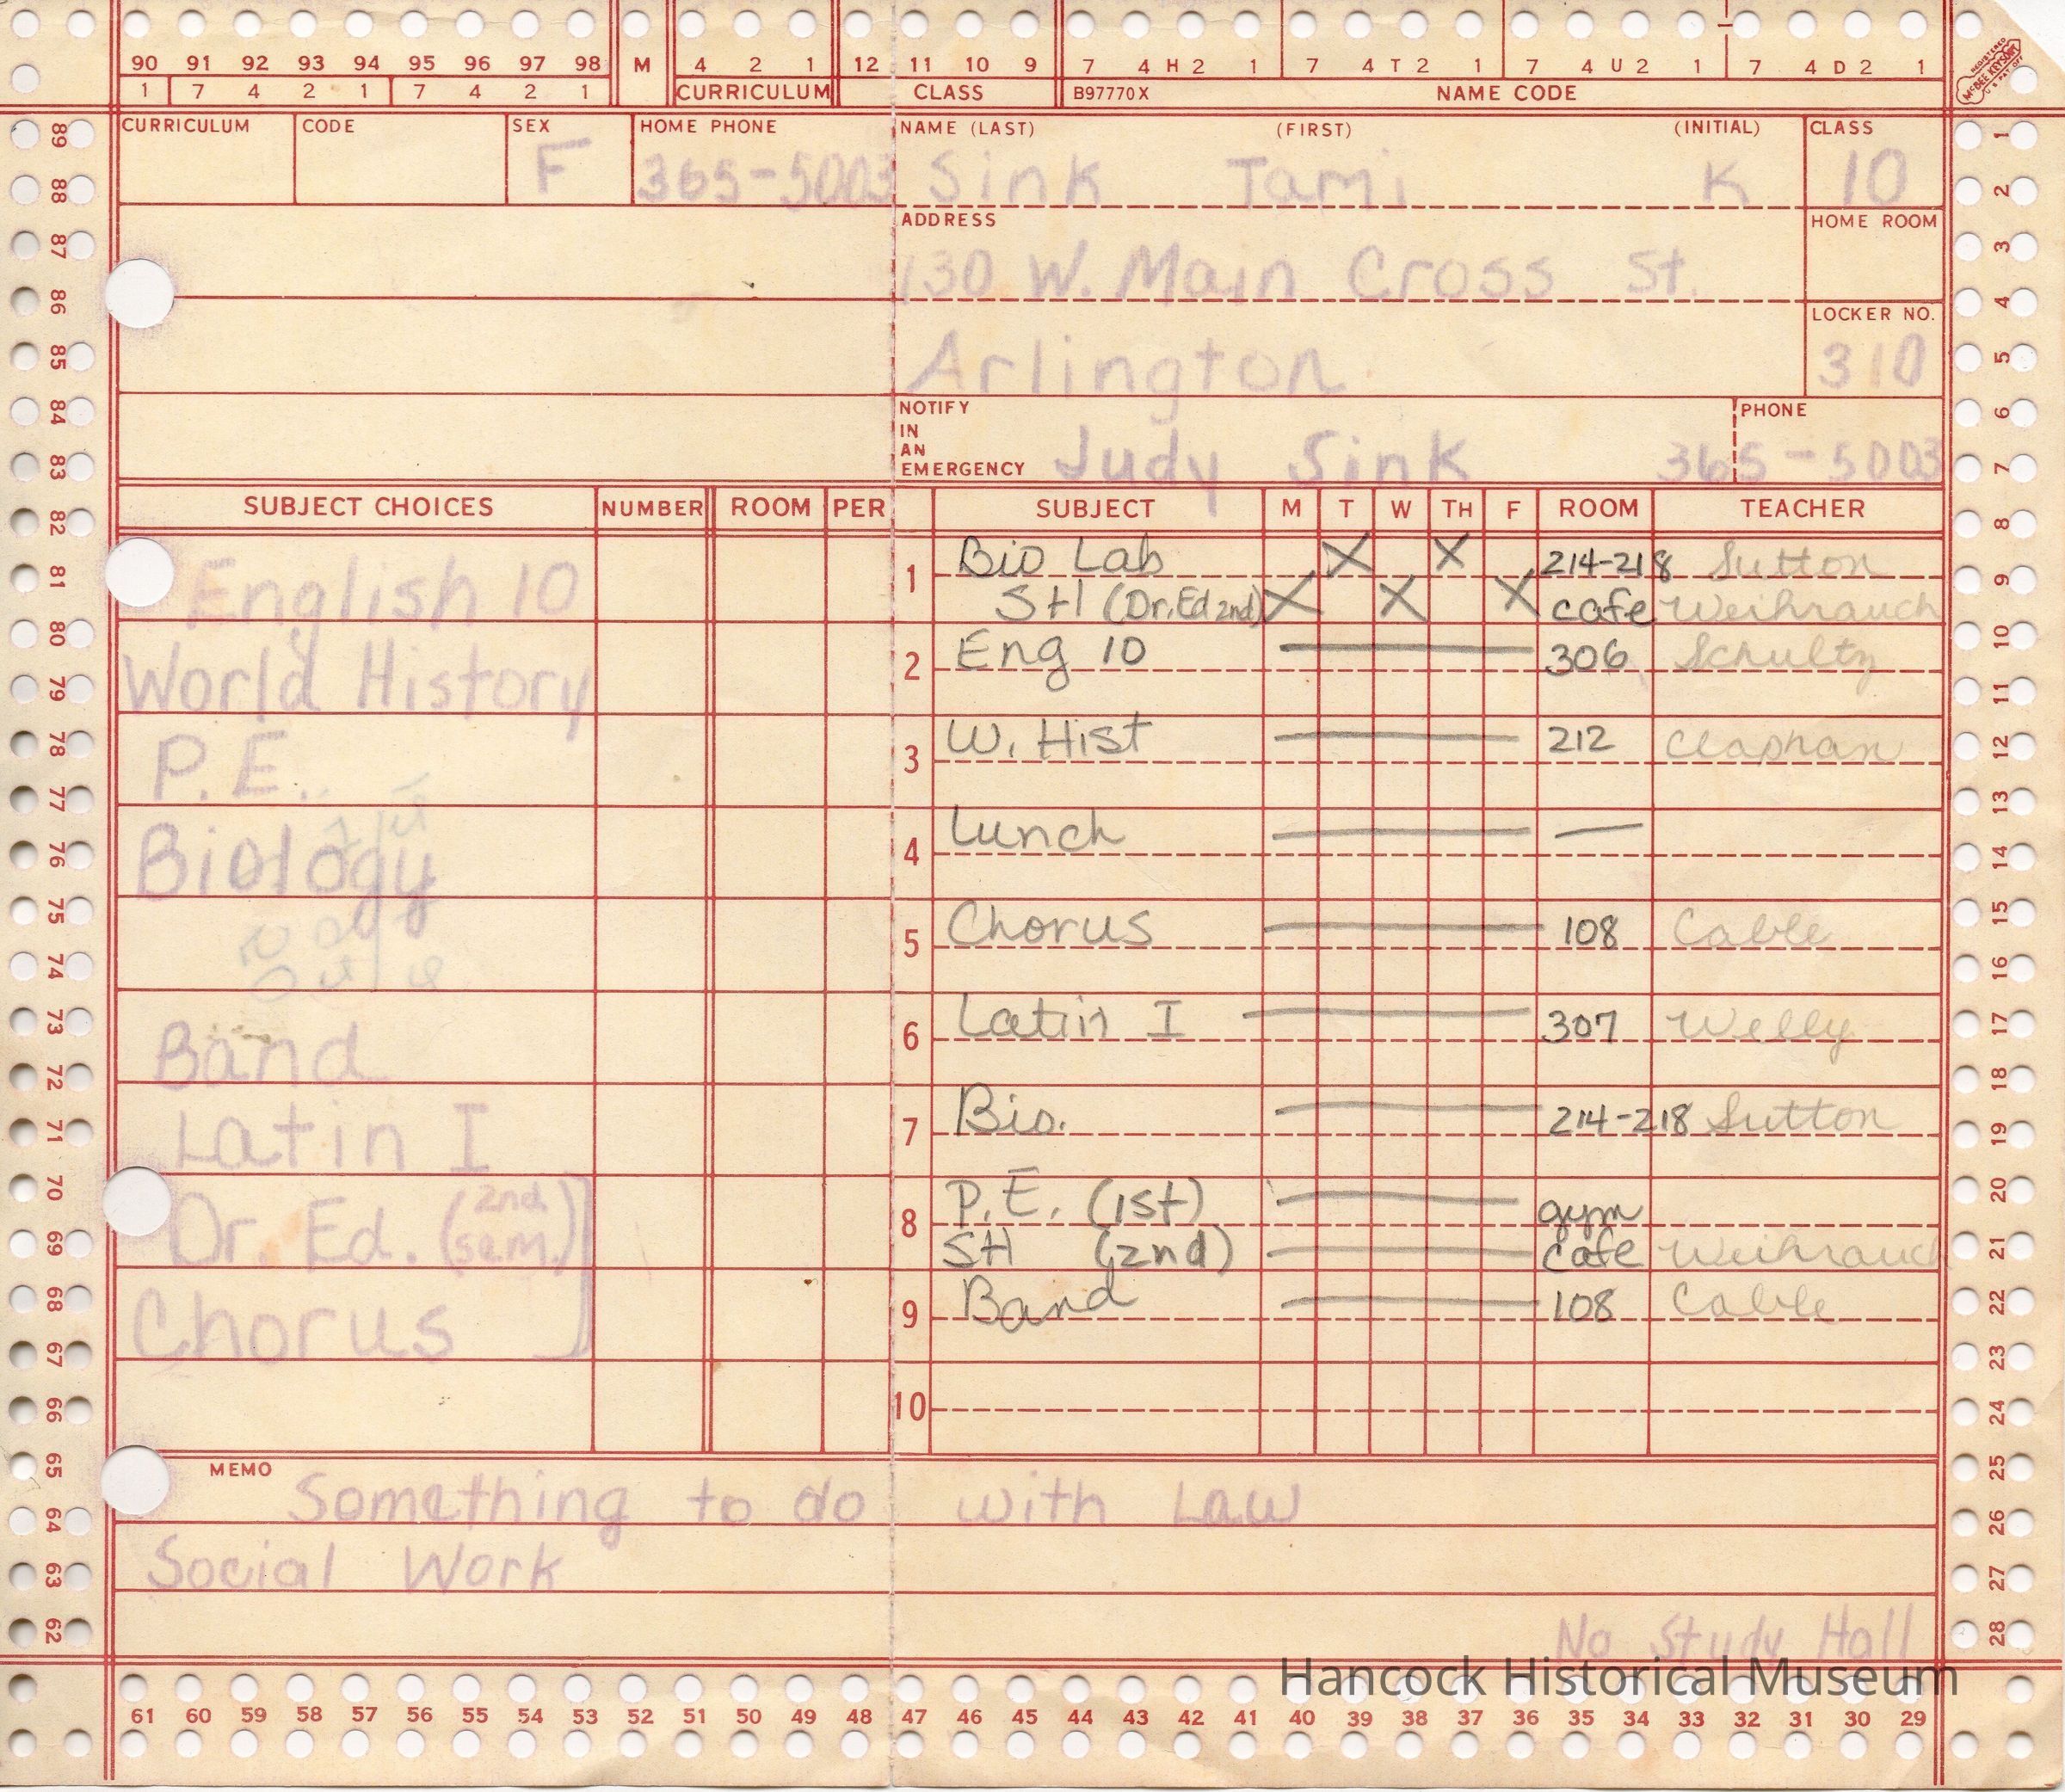 90 91 92 93 94 95 96 97 98 M 4 2 1 12 11 10 9 7 4 H 2 1 7 4 T 2 1 7 4 U 2 1 7 4 D 2 1
1 7 4 2 1 7 4 2 1 CURRICULUM CLASS B97770X NAME CODE
REGISTERED
McBEE KEYSORT
CURRICULUM CODE SEX HOME PHONE NAME (LAST) (FIRST) (INITIAL) CLASS
F 365-5003 Sink Tami K 10
ADDRESS HOME ROOM
130 W. Main Cross St.
LOCKER NO.
Arlington 310
NOTIFY IN AN EMERGENCY Judy Sink PHONE 365-5003
SUBJECT CHOICES NUMBER ROOM PER SUBJECT M T W TH F ROOM TEACHER
English 10
World History
P.E.
Biology
Band
Latin I
Dr. Ed. (2nd sem.)
Chorus
1 Bio Lab X X 214-218 Sutton
SH (Dr. Ed 2nd) X X X cafe Weihrauch
2 Eng 10 306 Schultz
3 W. Hist 212 Claphan
4 Lunch —
5 Chorus 108 Cable
6 Latin I 307 Welly
7 Bio. 214-218 Sutton
8 P.E. (1st) gym
SH (2nd) cafe Weihrauch
9 Band 108 Cable
10
MEMO Something to do with Law
Social Work
No Study Hall
Hancock Historical Museum
61 60 59 58 57 56 55 54 53 52 51 50 49 48 47 46 45 44 43 42 41 40 39 38 37 36 35 34 33 32 31 30 29
89 88 87 86 85 84 83 82 81 80 79 78 77 76 75 74 73 72 71 70 69 68 67 66 65 64 63 62
1 2 3 4 5 6 7 8 9 10 11 12 13 14 15 16 17 18 19 20 21 22 23 24 25 26 27 28